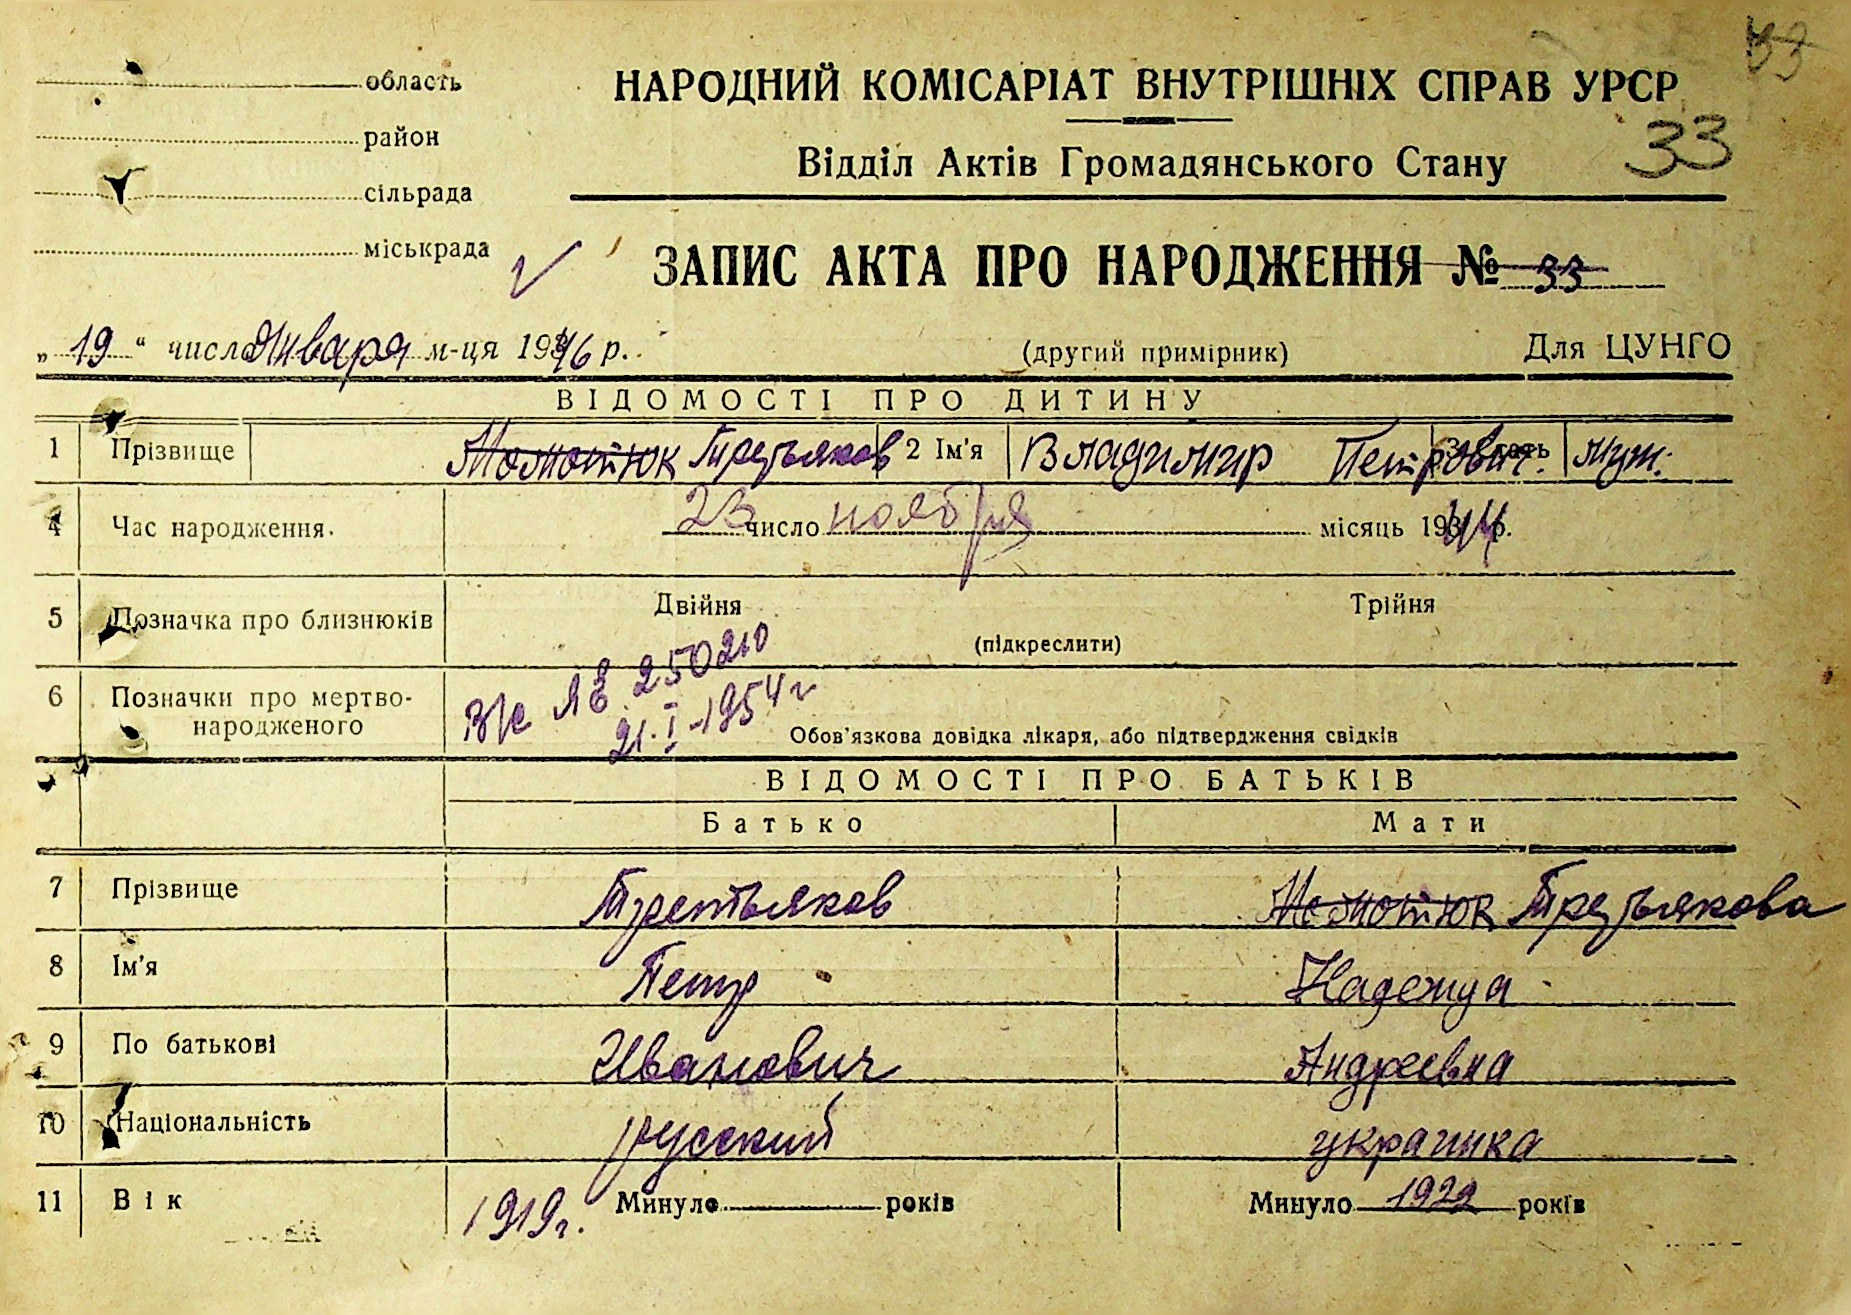 область
район
сільрада
міськрада
НАРОДНИЙ КОМІСАРІАТ ВНУТРІШНІХ СПРАВ УРСР
33
Відділ Актів Громадянського Стану
ЗАПИС АКТА ПРО НАРОДЖЕННЯ № 33
„19“ число Января м-ця 1946 р.
(другий примірник)
Для ЦУНГО
ВІДОМОСТІ ПРО ДИТИНУ
1 Прізвище Третьяков 2 Ім'я Владимир Петрович. 3 муж.
4 Час народження. 23 число ноября місяць 1944 р.
5 Позначка про близнюків Двійня Трійня
(підкреслити)
6 Позначки про мертво-
народженого
В/с ЯЕ 250210
21.I-1954 г
Обов'язкова довідка лікаря, або підтвердження свідків
ВІДОМОСТІ ПРО БАТЬКІВ
Батько Мати
7 Прізвище Третьяков Третьякова
8 Ім'я Петр Надежда
9 По батькові Иванович Андреевна
10 Національність русский украинка
11 Вік 1919г. Минуло років Минуло 1922 років